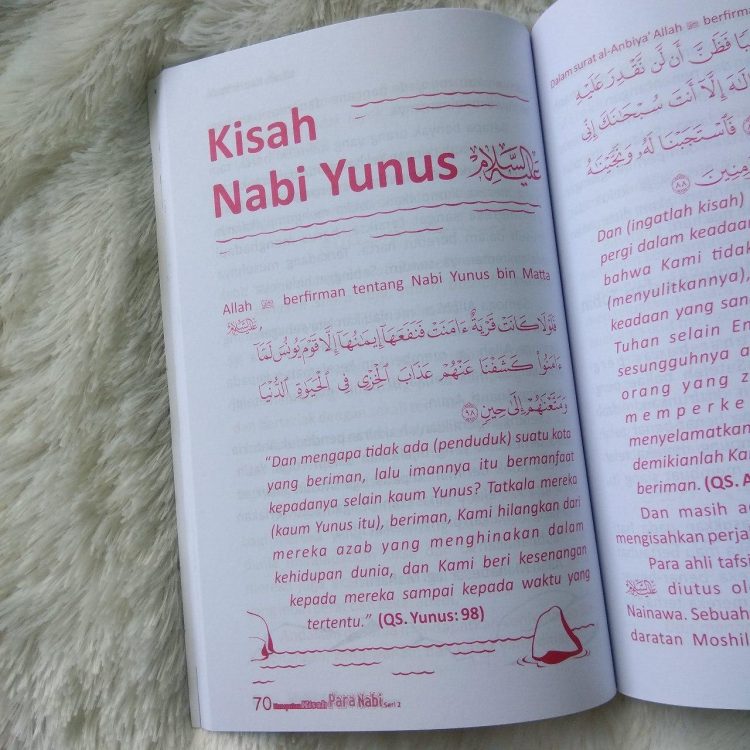 Kisah
Nabi Yunus عليه السلام
Allah ﷻ berfirman tentang Nabi Yunus bin Matta
عليه السلام,
فَلَوْلَا كَانَتْ قَرْيَةٌ ءَامَنَتْ فَنَفَعَهَآ إِيمَـٰنُهَآ إِلَّا قَوْمَ يُونُسَ لَمَّآ
ءَامَنُوا۟ كَشَفْنَا عَنْهُمْ عَذَابَ الْخِزْىِ فِى الْحَيَوٰةِ الدُّنْيَا
وَمَتَّعْنَـٰهُمْ إِلَىٰ حِينٍ ٩٨
"Dan mengapa tidak ada (penduduk) suatu kota
yang beriman, lalu imannya itu bermanfaat
kepadanya selain kaum Yunus? Tatkala mereka
(kaum Yunus itu), beriman, Kami hilangkan dari
mereka azab yang menghinakan dalam
kehidupan dunia, dan Kami beri kesenangan
kepada mereka sampai kepada waktu yang
tertentu." (QS. Yunus: 98)
70 Kisah Para Nabi Seri 2
Dalam surat al-Anbiya' Allah ﷻ berfirm
فَظَنَّ أَن لَّن نَّقْدِرَ عَلَيْهِ
لَهَ إِلَّآ أَنتَ سُبْحَـٰنَكَ إِنِّى
فَاسْتَجَبْنَا لَهُۥ وَنَجَّيْنَـٰهُ
مِنِينَ ٨٨
Dan (ingatlah kisah)
pergi dalam keadaa
bahwa Kami tidak
(menyulitkannya),
keadaan yang san
Tuhan selain En
sesungguhnya a
orang yang z
memperke
menyelamatkan
demikianlah Ka
beriman. (QS. A
Dan masih a
mengisahkan perja
Para ahli tafsi
عليه السلام diutus ol
Nainawa. Sebuah
daratan Moshil